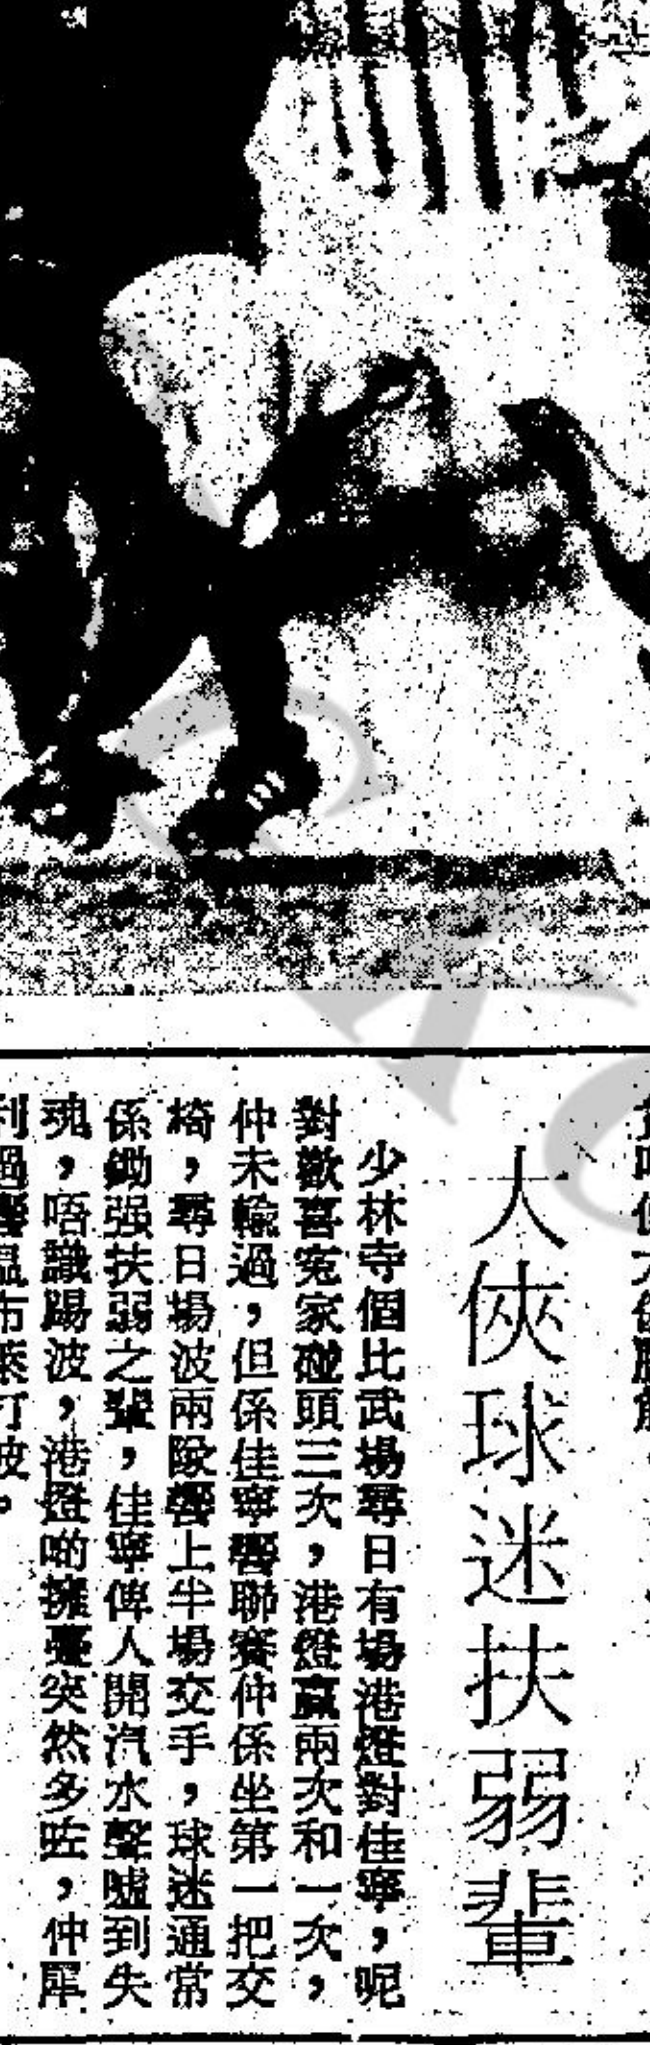 大俠球迷扶弱輩
少林寺個比武場尋日有場港燈對佳寧，呢
對歡喜冤家碰頭三次，港燈贏兩次和一次，
仲未輸過，但係佳寧響聯賽仲係坐第一把交
椅，尋日場波兩隊響上半場交手，球迷通常
係鋤强扶弱之輩，佳寧俾人開汽水聲噓到失
魂，唔識踢波，港燈啲擁躉突然多咗，仲犀
利過響溫布萊打波。